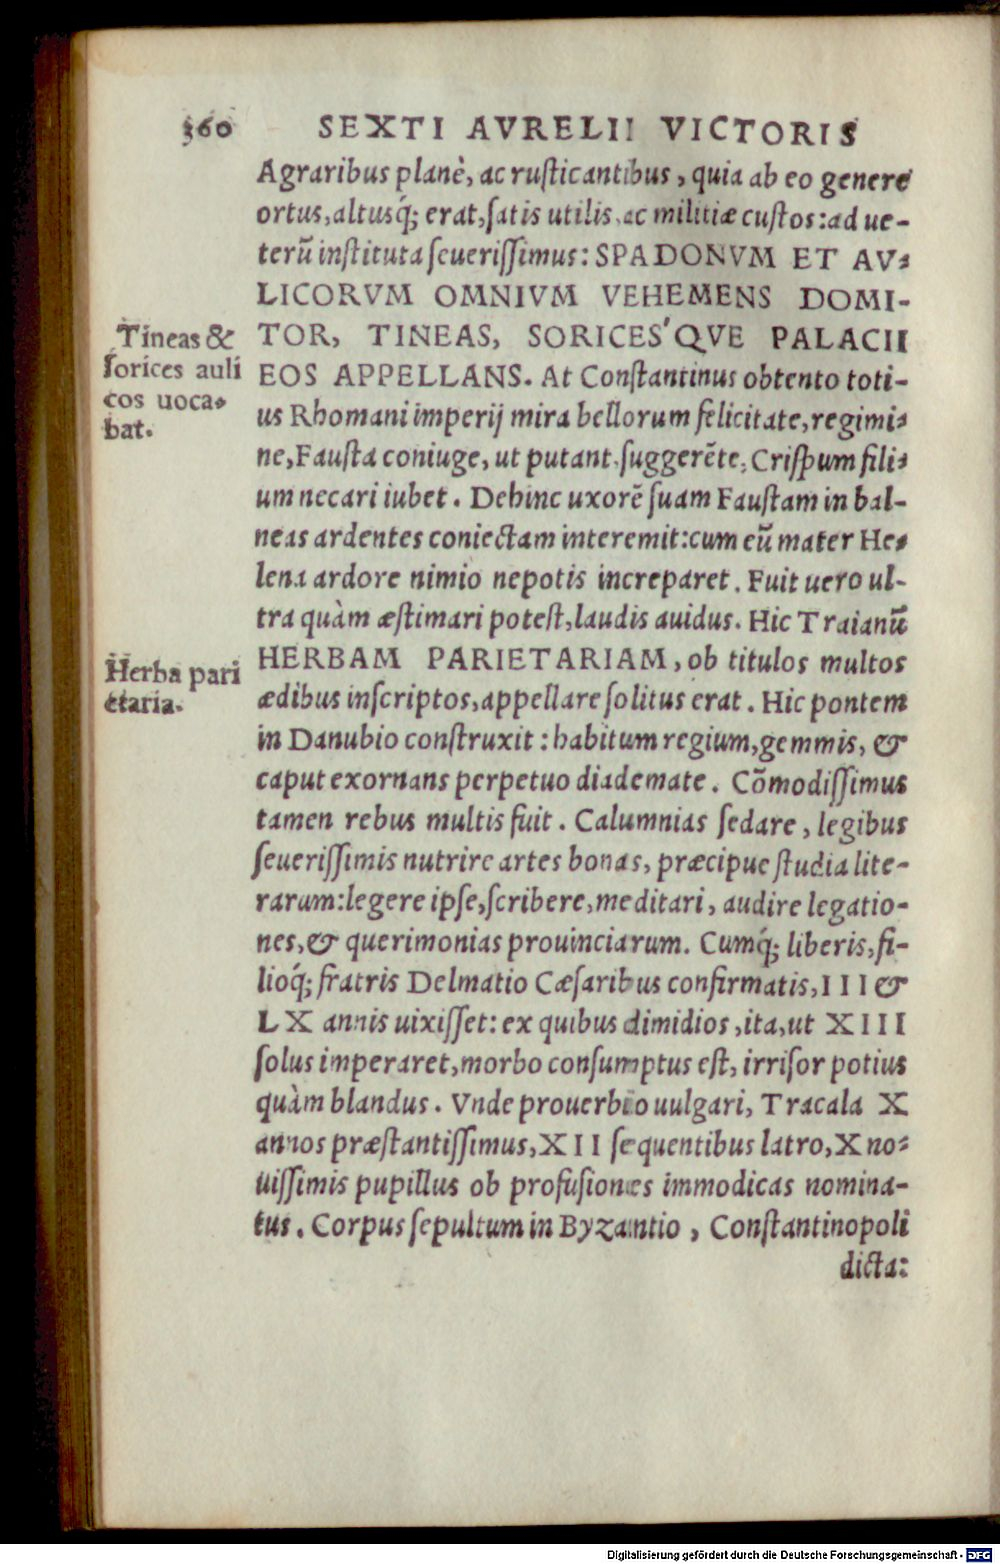 360 SEXTI AVRELII VICTORIS
Agraribus planè, ac rusticantibus, quia ab eo genere
ortus, altusq́; erat, satis utilis, ac militiæ custos: ad ue-
terũ instituta seuerissimus: SPADONVM ET AV-
LICORVM OMNIVM VEHEMENS DOMI-
TOR, TINEAS, SORICES'QVE PALACII
EOS APPELLANS. At Constantinus obtento toti-
us Rhomani imperij mira bellorum felicitate, regimi-
ne, Fausta coniuge, ut putant, suggerẽte, Crispum fili-
um necari iubet. Dehinc uxorẽ suam Faustam in bal-
neas ardentes coniectam interemit: cum eũ mater He-
lena ardore nimio nepotis increparet. Fuit uero ul-
tra quàm æstimari potest, laudis auidus. Hic Traianũ
HERBAM PARIETARIAM, ob titulos multos
ædibus inscriptos, appellare solitus erat. Hic pontem
in Danubio construxit: habitum regium, gemmis, &
caput exornans perpetuo diademate. Cõmodissimus
tamen rebus multis fuit. Calumnias sedare, legibus
seuerissimis nutrire artes bonas, præcipue studia lite-
rarum: legere ipse, scribere, meditari, audire legatio-
nes, & querimonias prouinciarum. Cumq́; liberis, fi-
lioq́; fratris Delmatio Cæsaribus confirmatis, III &
LX annis uixisset: ex quibus dimidios, ita, ut XIII
solus imperaret, morbo consumptus est, irrisor potius
quàm blandus. Vnde prouerbio uulgari, Tracala X
annos præstantissimus, XII sequentibus latro, X no-
uissimis pupillus ob profusiones immodicas nomina-
tus. Corpus sepultum in Byzantio, Constantinopoli
dicta:
Tineas &
sorices auli
cos uoca-
bat.
Herba pari
etaria.
Digitalisierung gefördert durch die Deutsche Forschungsgemeinschaft - DFG